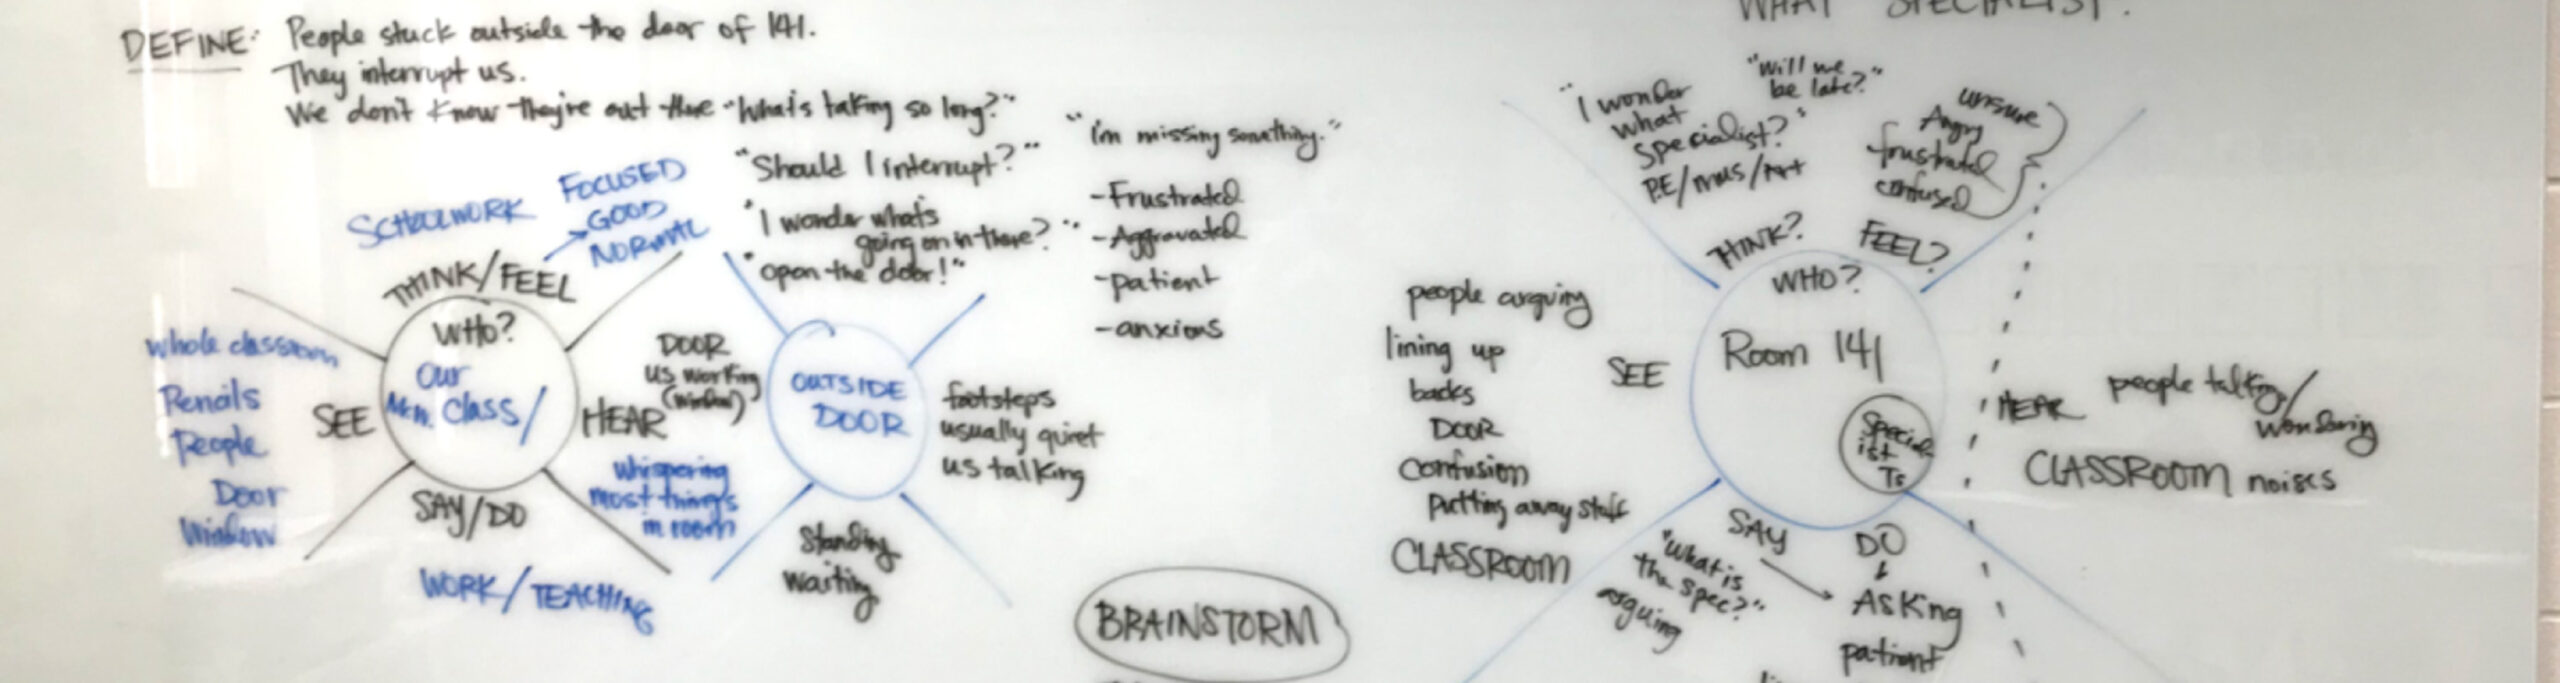 DEFINE: People stuck outside the door of 141.
They interrupt us.
We don't know they're out there "What's taking so long?"
"Should I interrupt?"
"I wonder what's
going on in there?"
"open the door!"
"I'm missing something."
-Frustrated
-Aggravated
-patient
-anxious
SCHOOLWORK
FOCUSED
GOOD
NORMAL
THINK/FEEL
WHO?
our
class/
SEE
whole classroom
Pencils
People
Door
Window
HEAR
whispering
most things
in room
SAY/DO
WORK/TEACHING
DOOR
us working
(window)
OUTSIDE
DOOR
footsteps
usually quiet
us talking
Standing
waiting
BRAINSTORM
WHAT SPECIALIST?
"I wonder
what
specialist?"
P.E/mus/Art
"will we
be late?"
unsure
Angry
frustrated
confused
THINK?
FEEL?
WHO?
Room 141
Special
ist
Ts
SEE
people arguing
lining up
backs
DOOR
confusion
putting away stuff
CLASSROOM
HEAR
people talking/
wondering
CLASSROOM noises
SAY
"What is
the spec?"
arguing
DO
Asking
patient